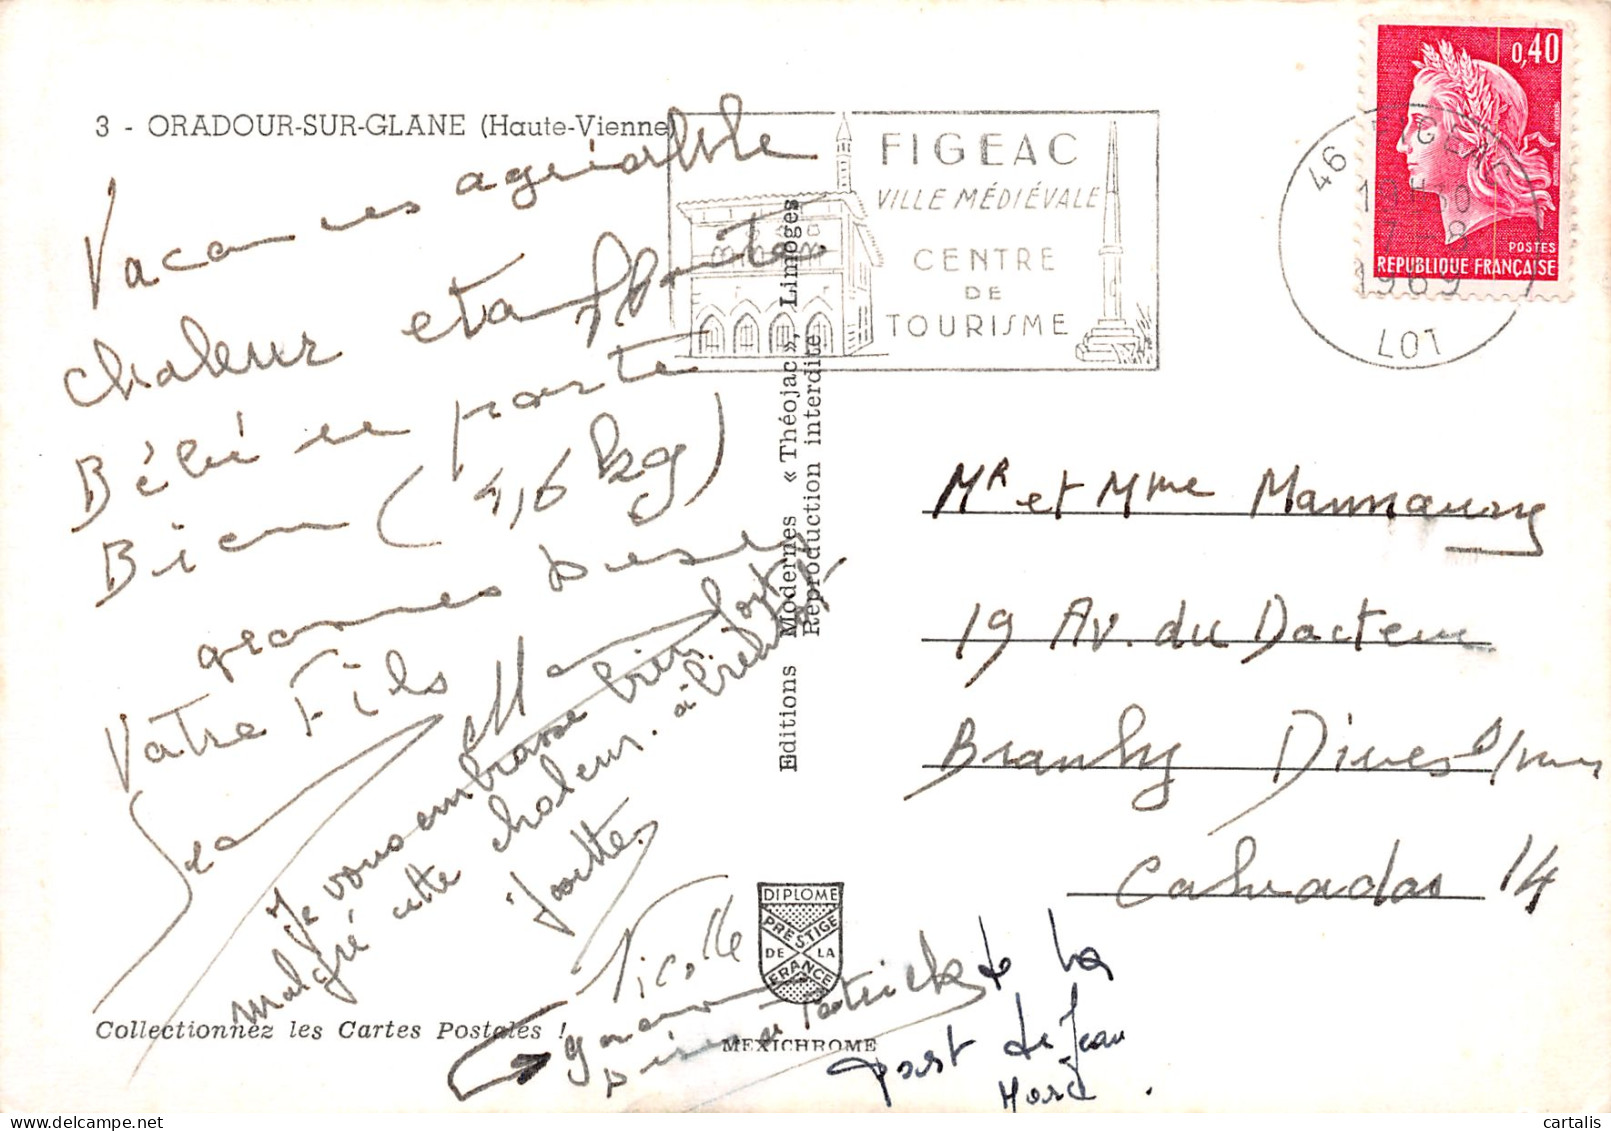 3 - ORADOUR-SUR-GLANE (Haute-Vienne)
Vacances agréable
chaleur etouffante
Bébé se porte
Bien (4,6 kg)
grosses bises
Votre Fils
Jean Marc
Je vous embrasse bien fort
malgré cette chaleur. à bientôt
Josette.
Nicolle
Patrick de la
part de Jean
Marc.
Collectionnez les Cartes Postales !
Editions Modernes « Théojac », Limoges
Reproduction interdite
DIPLOME
PRESTIGE
DE LA
FRANCE
MEXICHROME
FIGEAC
VILLE MÉDIÉVALE
CENTRE
DE
TOURISME
46 FIGEAC
19H30
7-8
1969
LOT
0,40
POSTES
REPUBLIQUE FRANÇAISE
Mr et Mme Mannaury
19 Av. du Docteur
Branly Dives s/mer
Calvados 14
cartalis